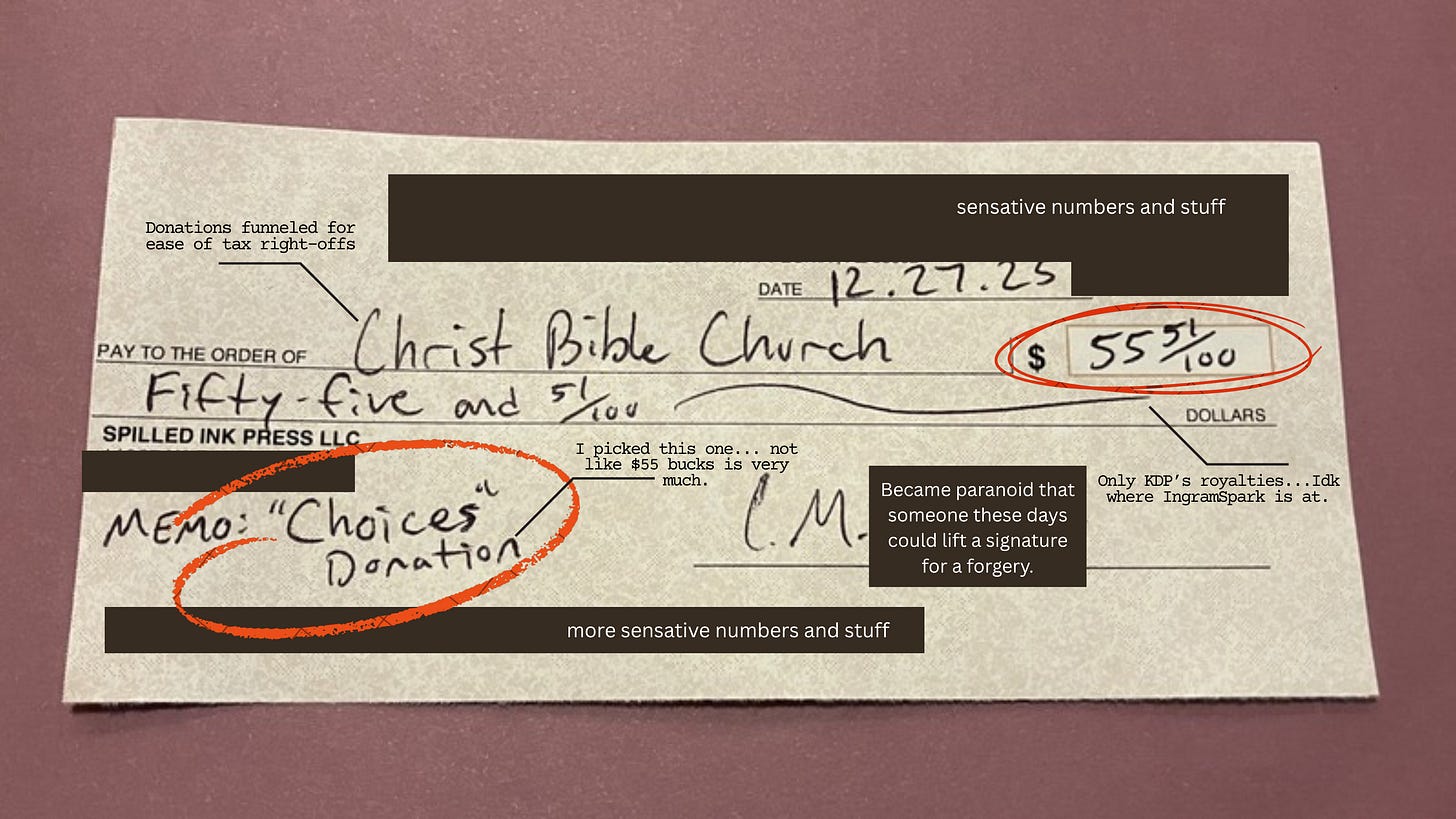 sensative numbers and stuff
Donations funneled for
ease of tax right-offs
DATE 12.27.25
PAY TO THE ORDER OF Christ Bible Church $ 55 51/100
Fifty-five and 51/100
DOLLARS
SPILLED INK PRESS LLC
I picked this one... not
like $55 bucks is very
much.
Only KDP’s royalties...Idk
where IngramSpark is at.
MEMO: "Choices"
Donation
C.M.
Became paranoid that
someone these days
could lift a signature
for a forgery.
more sensative numbers and stuff